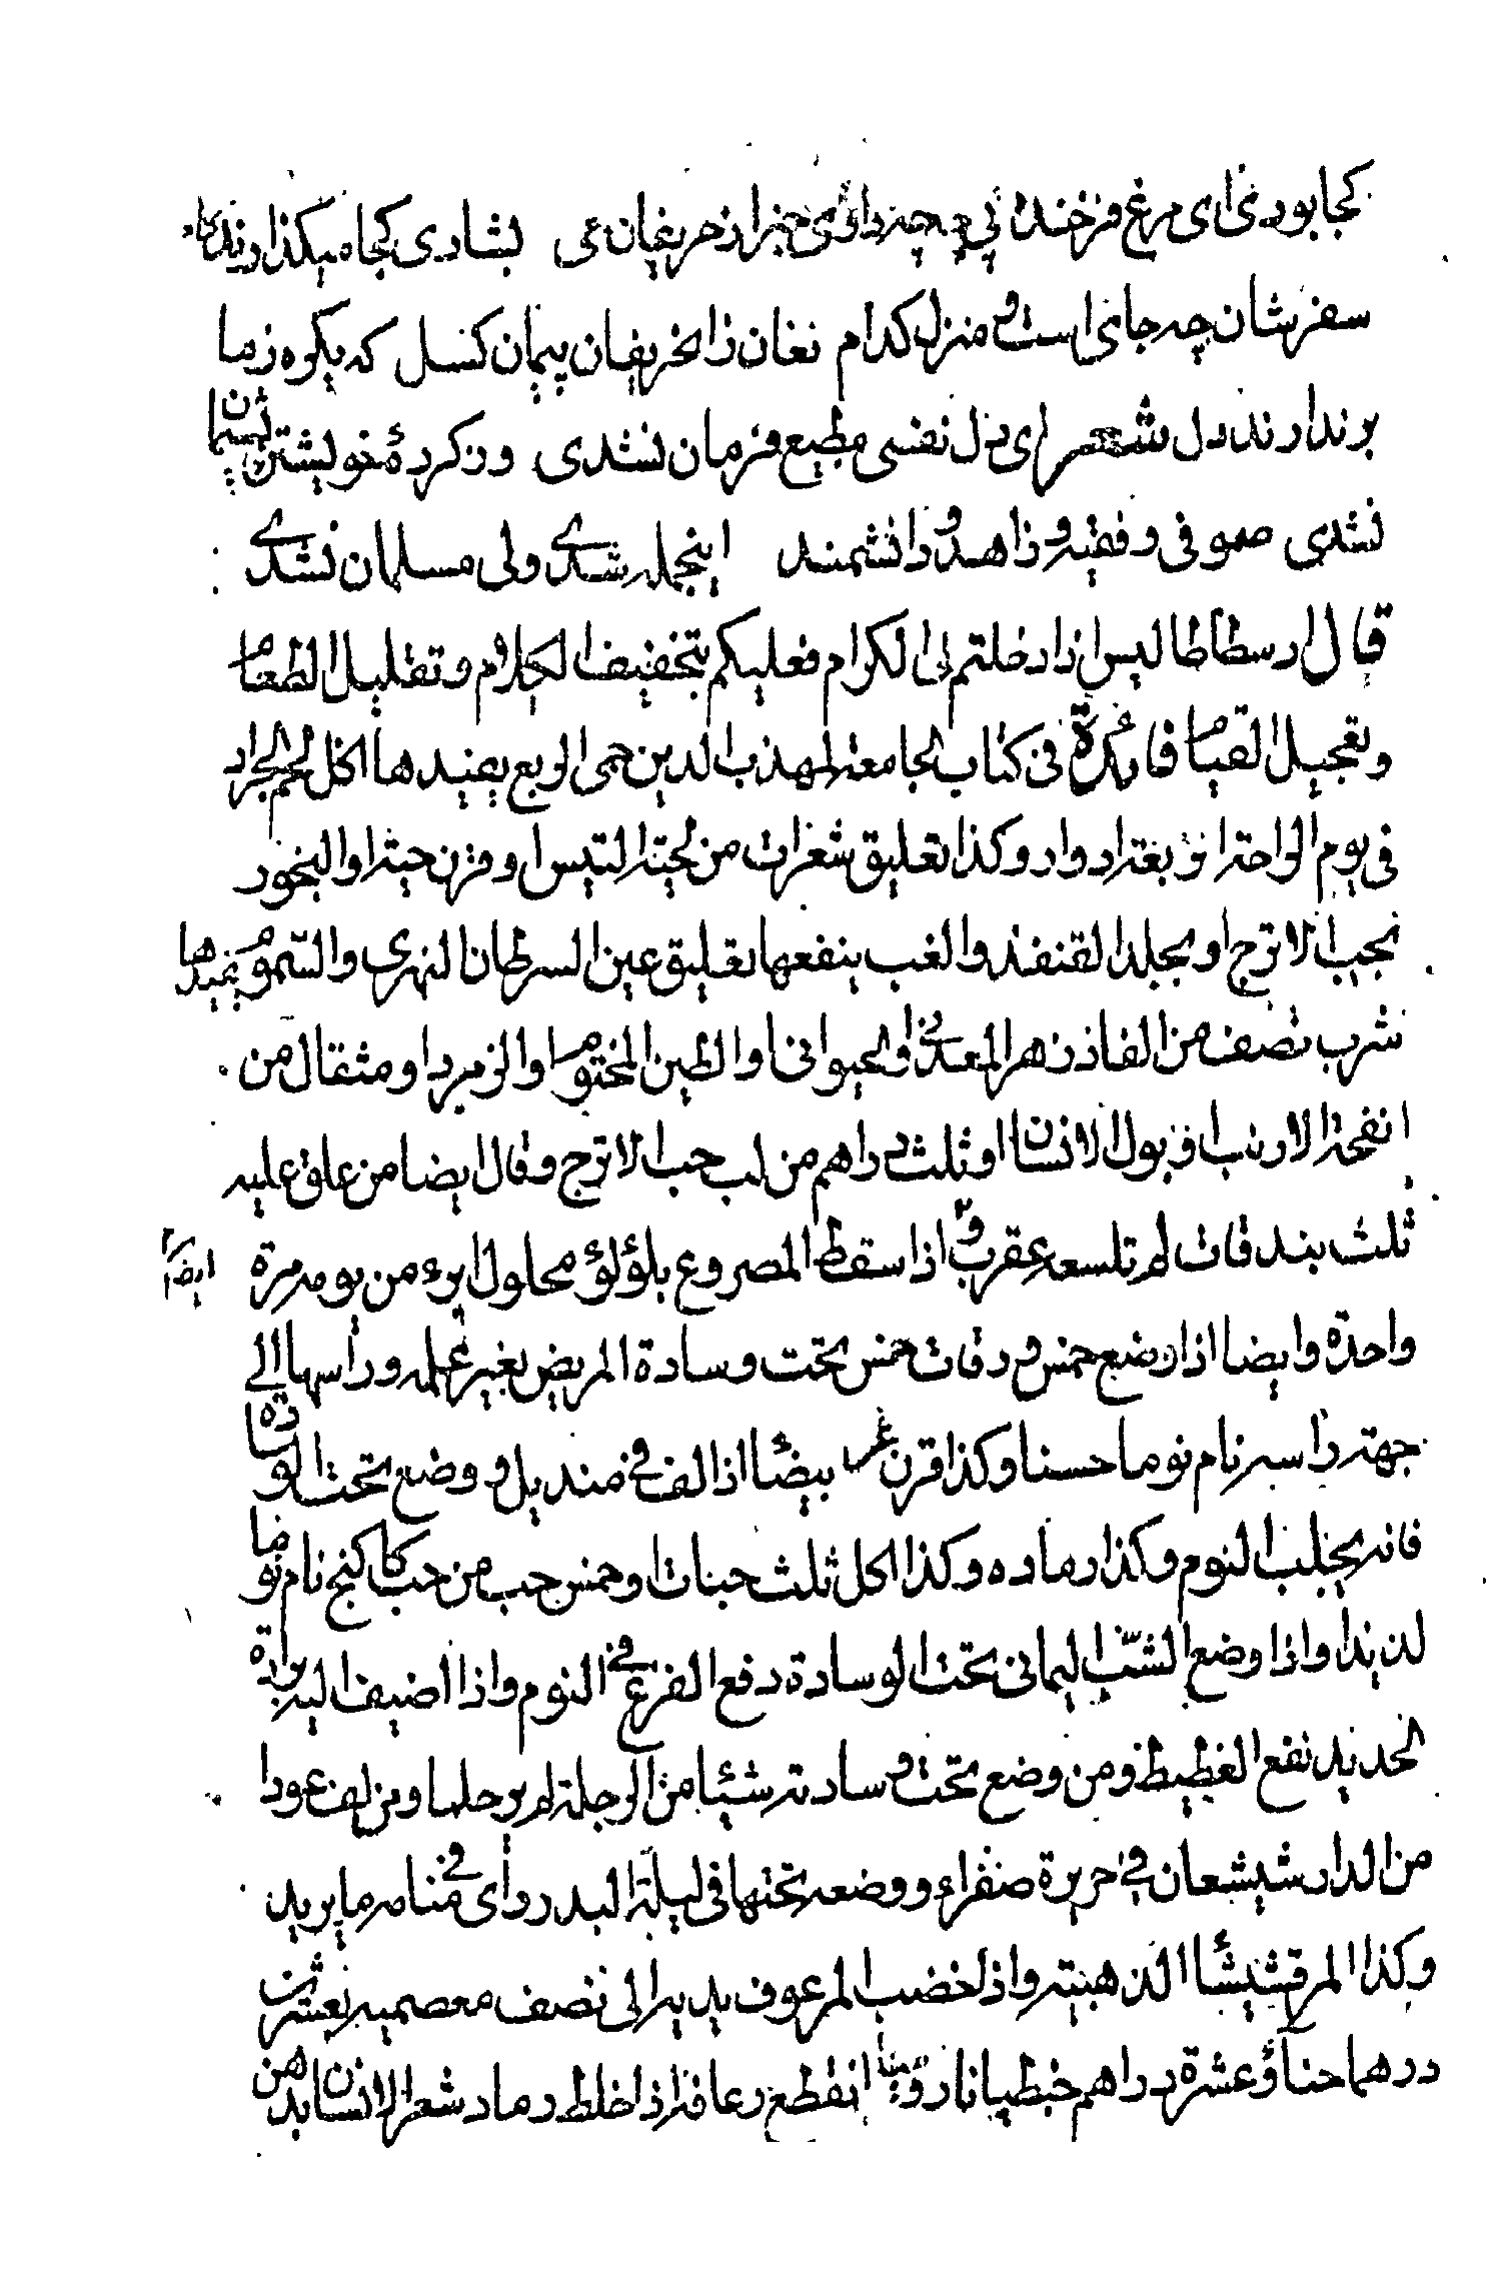 كجا بودی ای مرغ فرخنده پی چه داری خبر از حریفان می بشادی كجا میكذارند كام
سفرشان چه جای است و منزل كدام فغان زان حریفان پیمان كسل كه یكره ز ما
برندارند دل شعر ای دل نفسی مطیع فرمان نشدی وز كردهٔ خویشتن پشیمان
نشدی صوفی و فقیه و زاهد و دانشمند اینجمله شدی ولی مسلمان نشدی
قال ارسطاطاليس اذا دخلتم الى الكرام فعليكم بتخفيف الكلام وتقليل الطعام
وتعجيل القيام فائدة فى كتاب الجامعة لمهذب الدين حمى الربع يفيدها اكل لحم الجراد
فى يوم الراحة او بعد ادوار وكذا تعليق شعرات من لحية التيس او قرن حية او البخور
بحب الاترج او بجلد القنفذ والغب ينفعها تعليق عين السرطان النهرى والسموم يفيدها
شرب نصف من الفاذزهر المعدنى او الحيوانى او الطين المختوم او الزمرد او مثقال من
انفحة الارنب او بول الانسان او ثلث دراهم من لب حب الاترج وقال ايضا من علق عليه
ثلث بندقات لم تلسعه عقرب و اذا سقط المصروع بلؤلؤ محلول ابرء من يومه مرة ايضا
واحدة وايضا اذا وضع خمس ورقات خس تحت وسادة المريض بغير علمه وراسها الى
جهة راسه نام نوما حسنا وكذا قرن عنز بيضا اذا لف فى منديل ووضع تحت الوسادة
فانه يجلب النوم وكذا رماده وكذا اكل ثلث حبات او خمس حب من حب كاكنج نام نوما
لذيذا واذا وضع الشب اليمانى تحت الوسادة دفع الفزع فى النوم واذا اضيف اليه برادة
الحديد نفع الغطيط ومن وضع تحت وسادته شيئا من الوجلة لم يرحلها ومن لف عودا
من الدارشيشعان فى حريرة صفراء ووضعه تحتها فى ليلة البدر رأى فى منامه ما يريد
وكذا المرقشيشا الذهبية واذا خضب المرعوف يديه الى نصف معصميه بعشرين
درهما حنآ وعشرة دراهم جنطيانا روميا انقطع رعافه اذا خلط رماد شعر الانسان بدهن